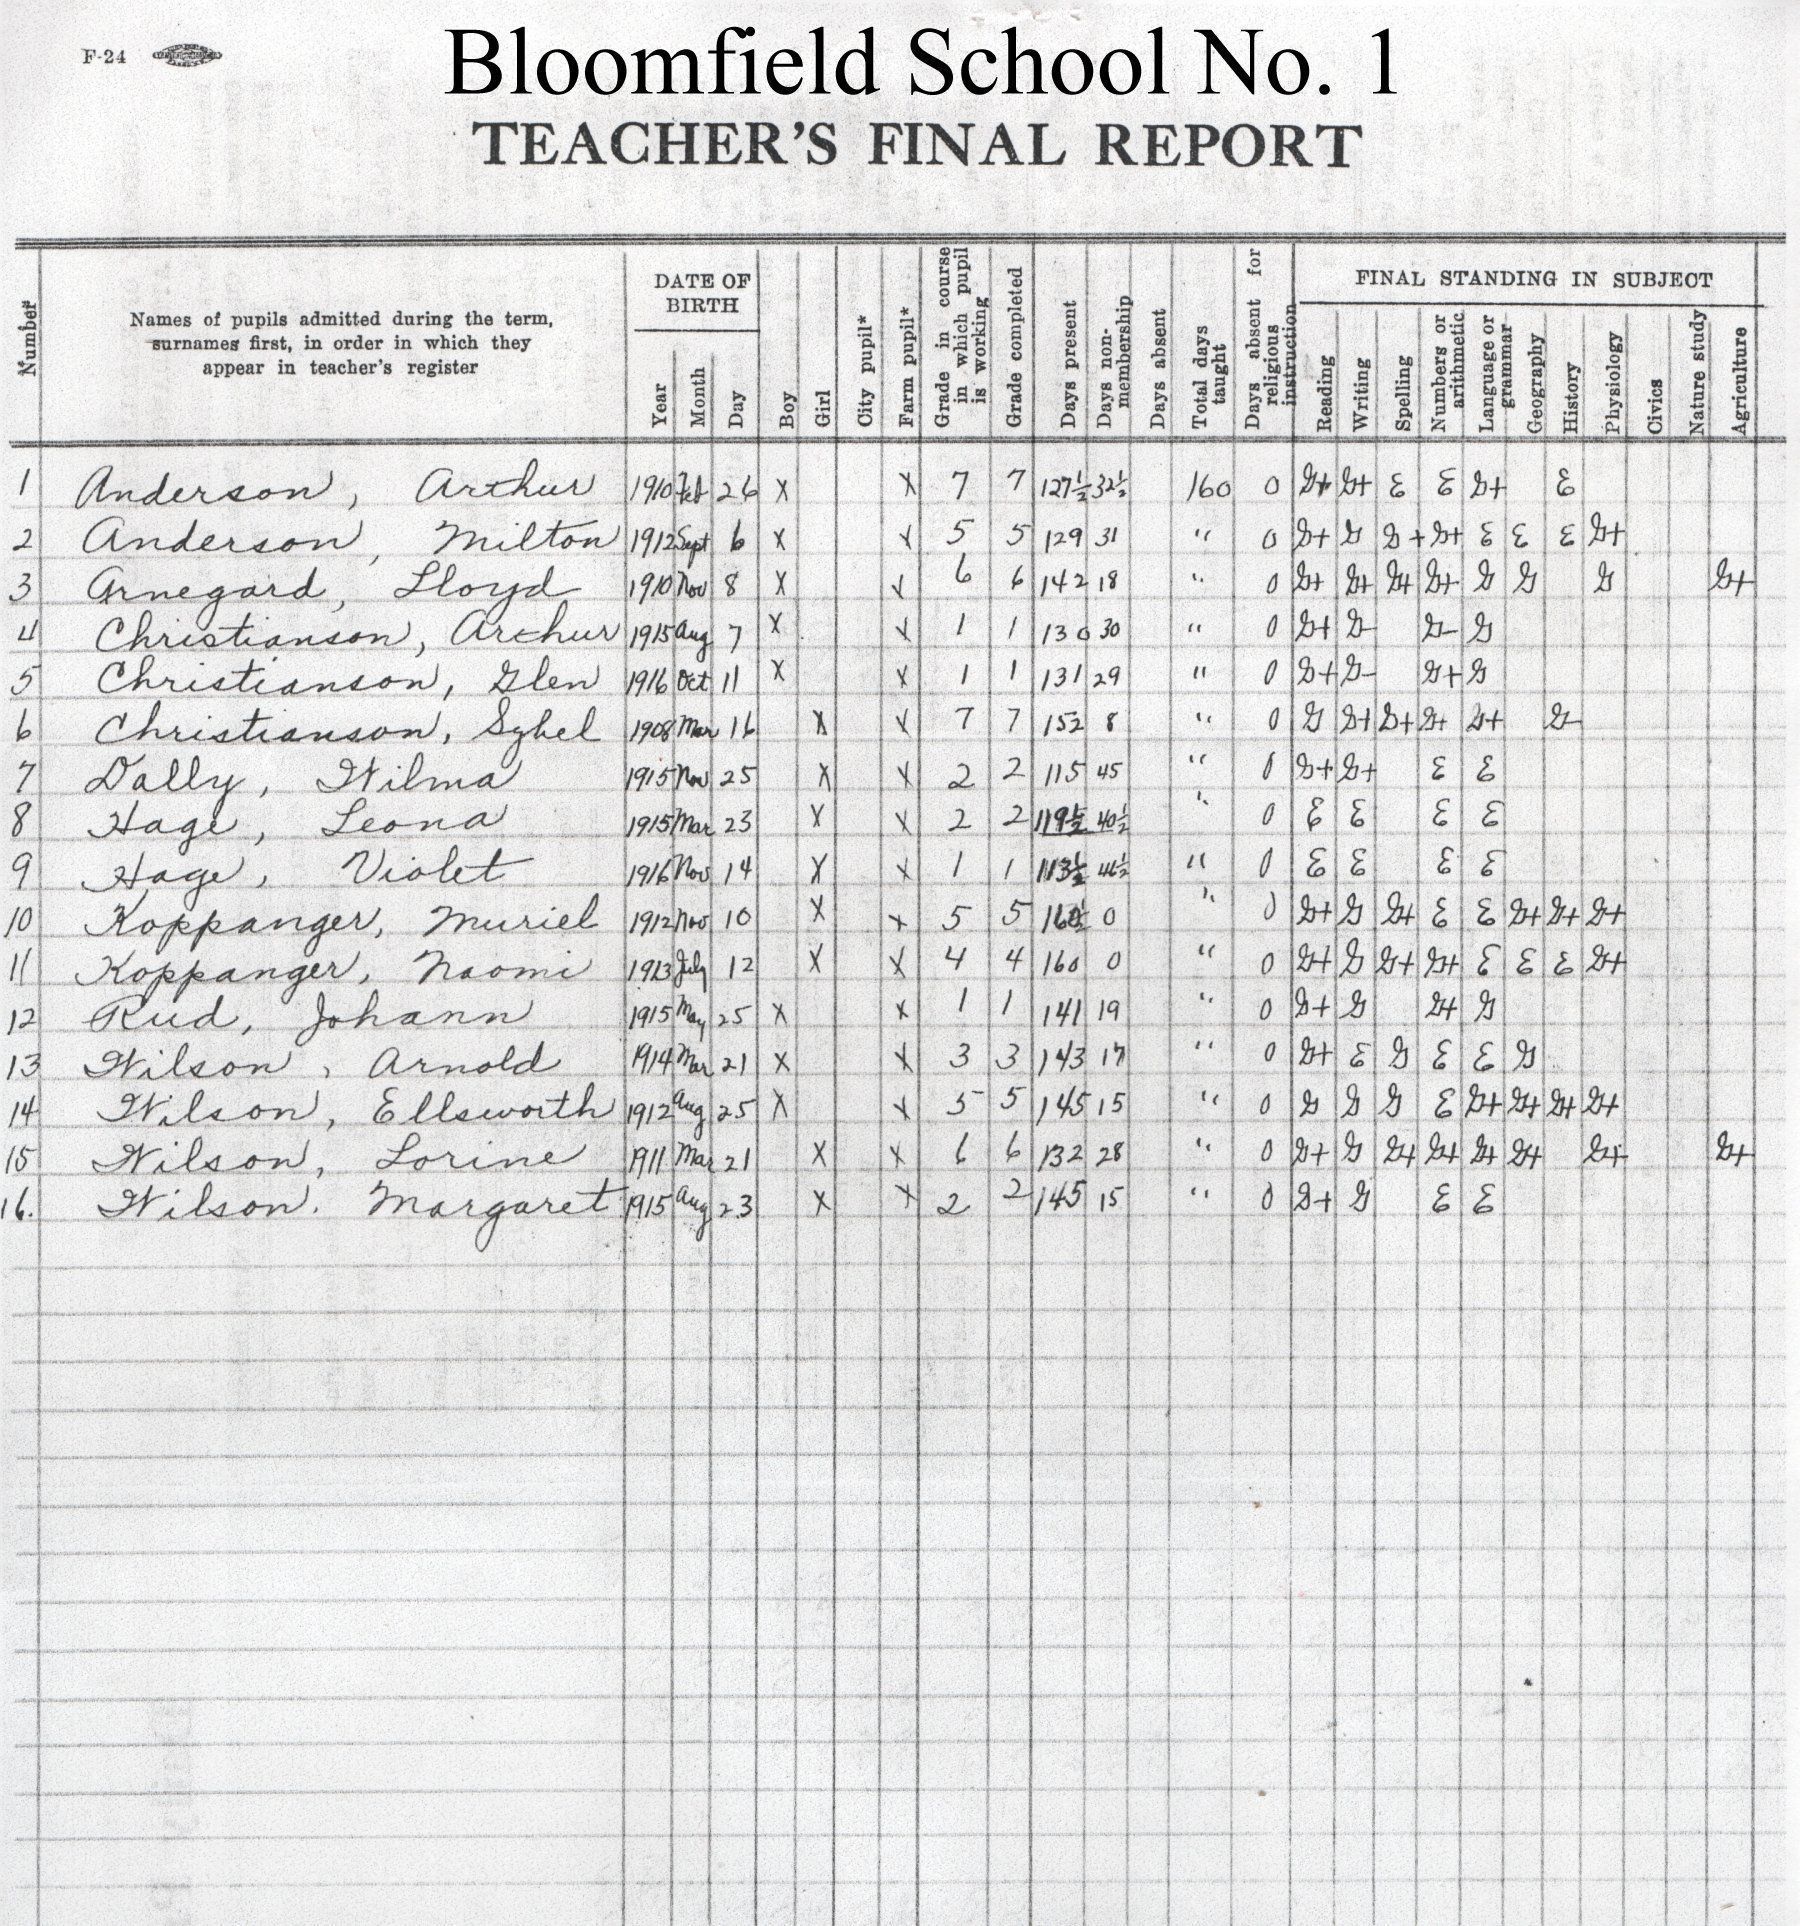 F-24
Bloomfield School No. 1
TEACHER'S FINAL REPORT
Number
Names of pupils admitted during the term, surnames first, in order in which they appear in teacher's register
DATE OF BIRTH
Year Month Day Boy Girl City pupil* Farm pupil* Grade in course in which pupil is working Grade completed Days present Days non-membership Days absent Total days taught Days absent for religious instruction
FINAL STANDING IN SUBJECT
Reading Writing Spelling Numbers or arithmetic Language or grammar Geography History Physiology Civics Nature study Agriculture
1 Anderson, Arthur 1910 Feb 26 X X 7 7 127½ 32½ 160 0 G+ G+ E E G+ E
2 Anderson, Milton 1912 Sept 6 X X 5 5 129 31 " 0 G+ G G+ G+ E E E G+
3 Arnegard, Lloyd 1910 Nov 8 X X 6 6 142 18 " 0 G+ G+ G+ G+ G G G G+
4 Christianson, Arthur 1915 Aug 7 X X 1 1 130 30 " 0 G+ G- G- G
5 Christianson, Glen 1916 Oct 11 X X 1 1 131 29 " 0 G+ G- G+ G
6 Christianson, Sybel 1908 Mar 16 X X 7 7 152 8 " 0 G G+ G+ G+ G+ G-
7 Dally, Wilma 1915 Nov 25 X X 2 2 115 45 " 0 G+ G+ E E
8 Hage, Leona 1915 Mar 23 X X 2 2 119½ 40½ " 0 E E E E
9 Hage, Violet 1916 Nov 14 X X 1 1 113½ 46½ " 0 E E E E
10 Koppanger, Muriel 1912 Nov 10 X X 5 5 160 0 " 0 G+ G G+ E E G+ G+ G+
11 Koppanger, Naomi 1913 July 12 X X 4 4 160 0 " 0 G+ G G+ G+ E E E G+
12 Rud, Johann 1915 May 25 X X 1 1 141 19 " 0 G+ G G+ G
13 Wilson, Arnold 1914 Mar 21 X X 3 3 143 17 " 0 G+ E G E E G
14 Wilson, Ellsworth 1912 Aug 25 X X 5 5 145 15 " 0 G G G E G+ G+ G+ G+
15 Wilson, Lorine 1911 Mar 21 X X 6 6 132 28 " 0 G+ G G+ G+ G+ G+ G+ G+
16. Wilson. Margaret 1915 Aug 23 X X 2 2 145 15 " 0 G+ G E E